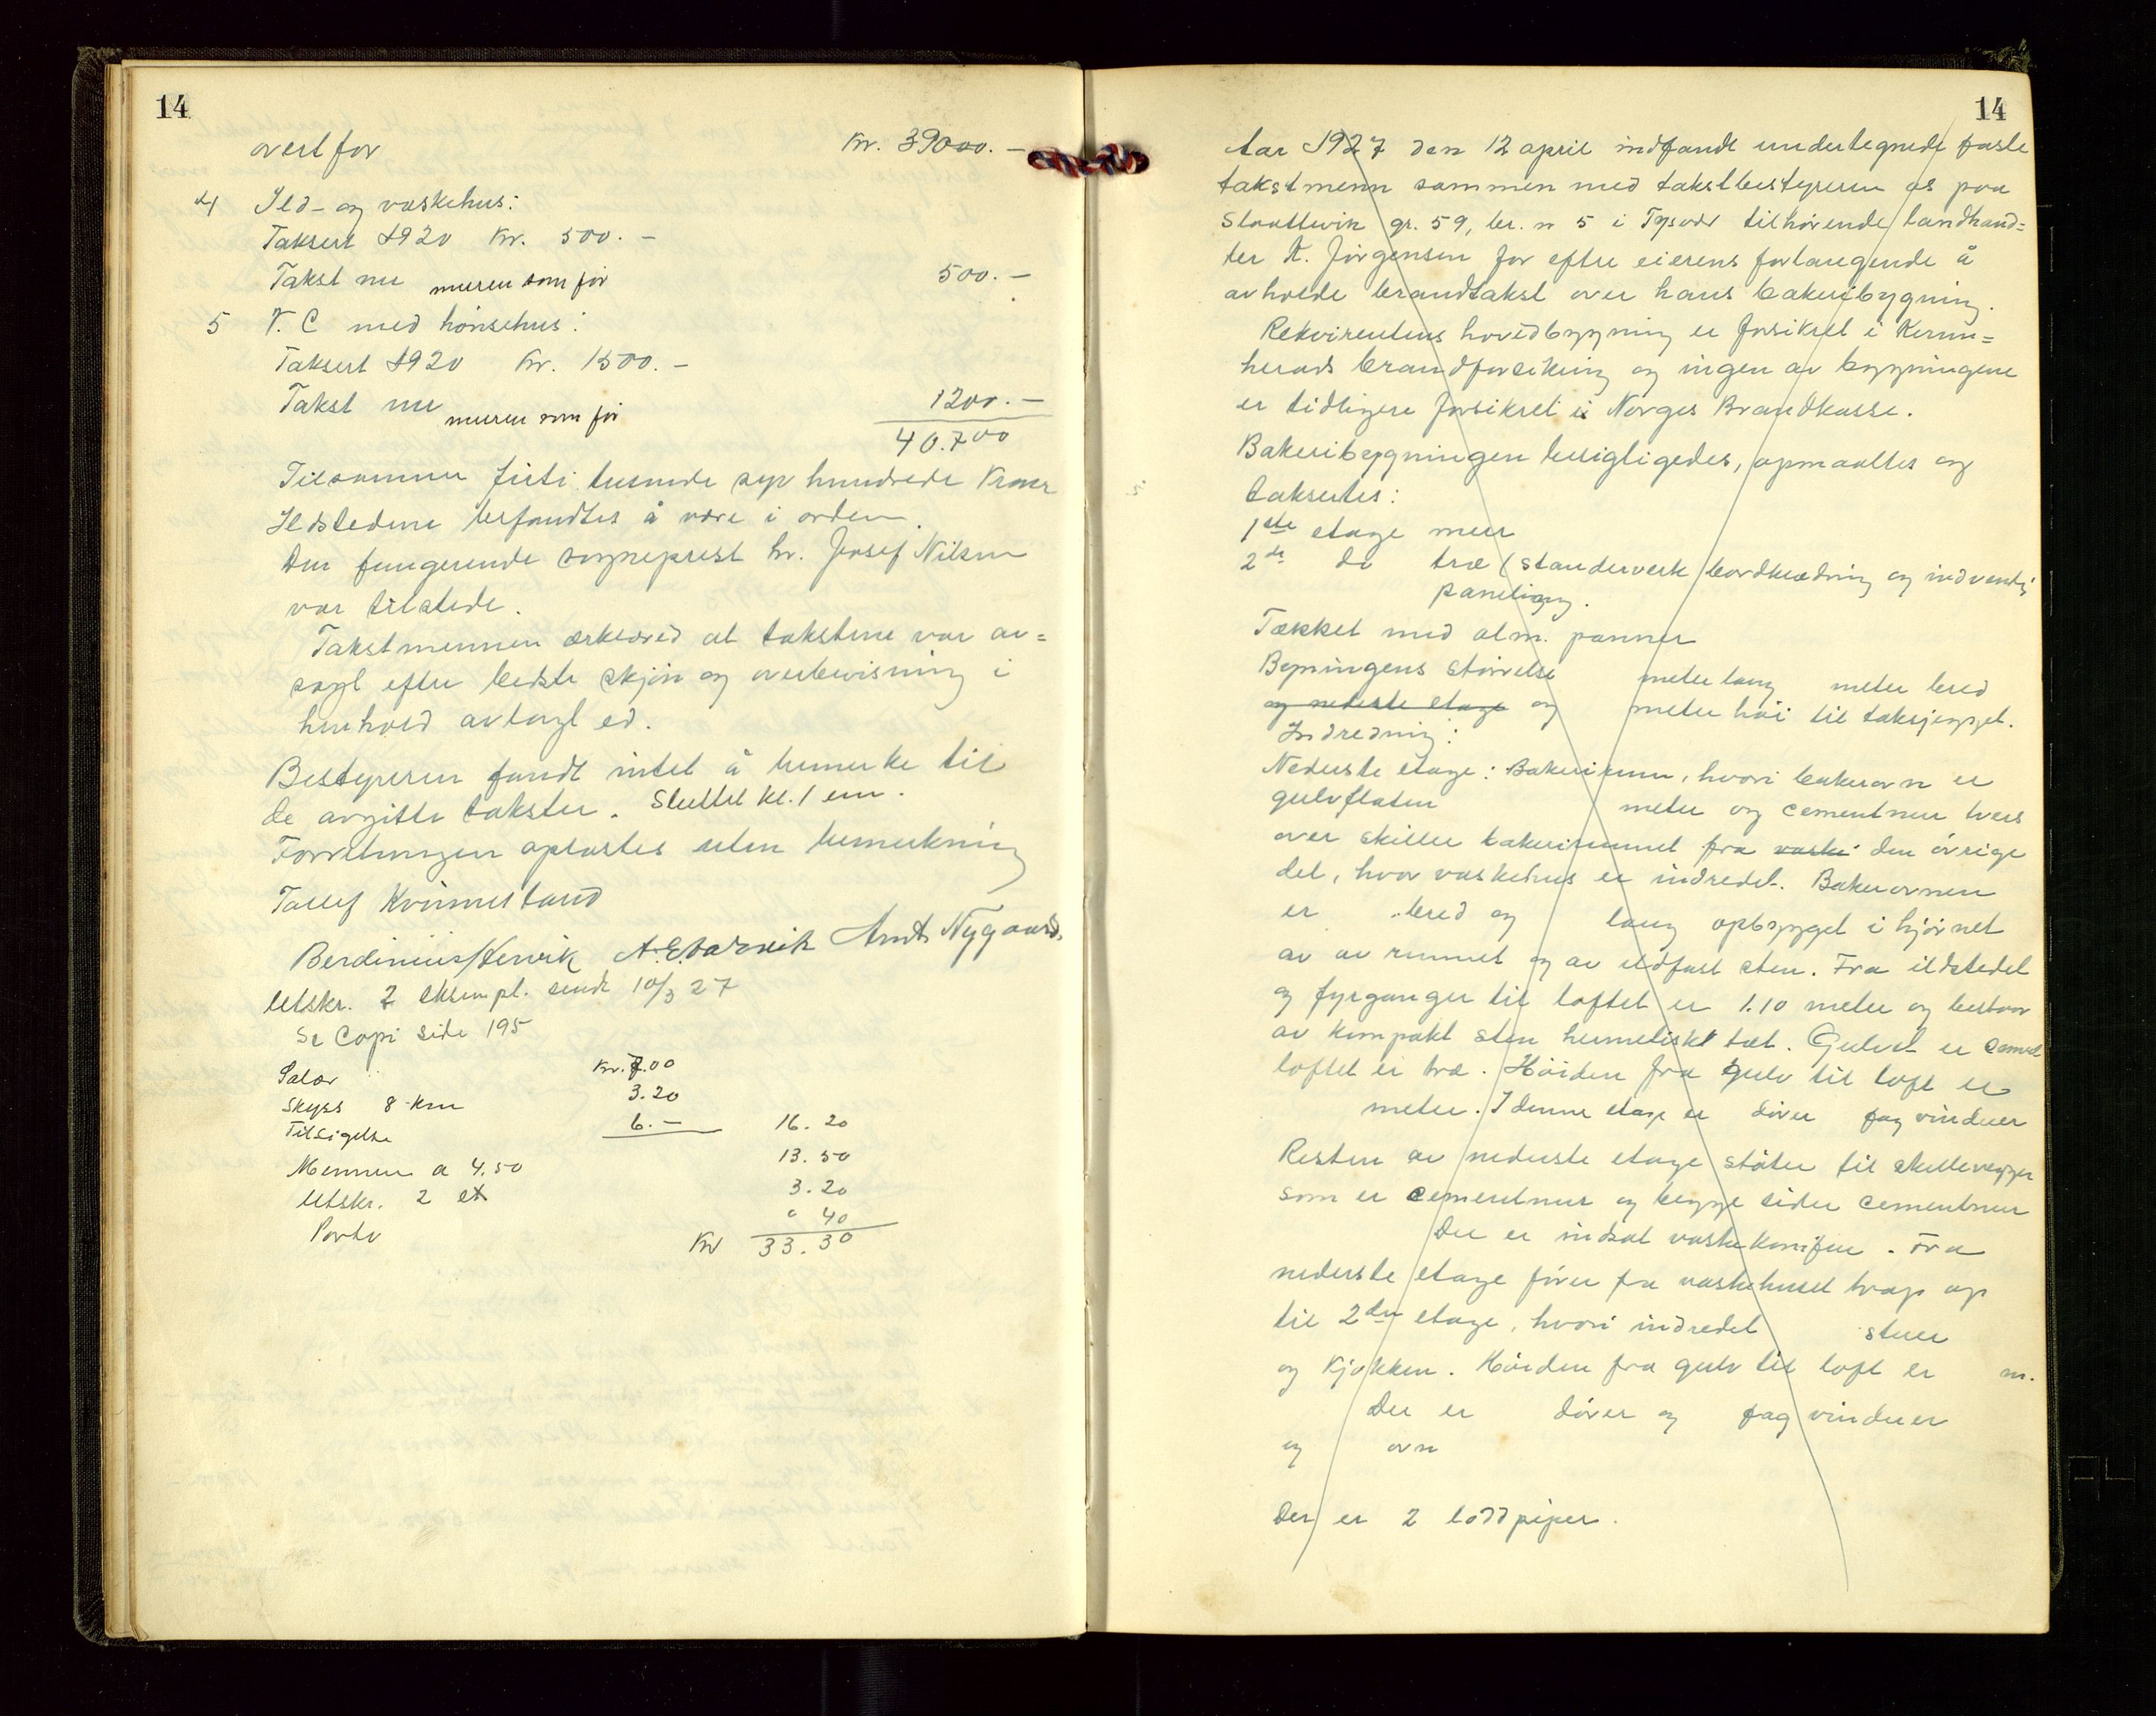 14
overt for Kr. 39000.-
4 Ild- og vaskehus:
Taksert 1920 Kr. 500.-
Takst nu muren som før 500.-
5 V. C med hønsehus:
Taksert 1920 Kr. 1500.-
Takst nu muren som før 1200.-
40.700
Tilsammen firti tusinde syv hundrede Kroner
Ildstedene befandtes å være i orden.
Den fungerende sogneprest hr. Josef Nilsen
var tilstede.
Takstmennen erklæred at takstene var av=
sagt efter bedste skjøn og overbevisning i
henhold avlagt ed.
Bestyreren fandt intet å bemerke til
de avgitte takster. Sluttet kl. 1 em.
Forretningen oplæstes uten bemerkning
Tollef Kvinnesland
Berdinius Henrik Arnt Nygaard.
Utskr. 2 eksempl. sendt 10/3 27
Se Copi side 195
Salær Kr. 7.00
Skyss 8 km 3.20
Tilsigelse 6.- 16.20
Mennene a 4.50 13.50
Utskr. 2 et 3.20
Porto " 40
Kr 33.30
14
Aar 1927 den 12 april indfandt undertegnede faste
takstmenn sammen med takstbestyreren os paa
Slaattevik gr. 59, br. n 5 i Tysvær tilhørende landhand=
ler K. Jørgensen for efter eierens forlangende å
avholde brandtakst over hans bakeribygning.
Rekvirentens hovedbygning er forsikret i Kevin=
herads brandforsikring og ingen av bygningene
er tidligere forsikret i Norges Brandkasse.
Bakeribygningen besigtigedes, opmaaltes og
taksertes:
1ste etage mur
2de do træ (standerverk bordklædning og indvendig
paneling.
Tækket med alm. panner
Bygningens størrelse meter lang meter bred
og nederste etage og meter høi til taksjegget.
Indredning:
Nederste etage: Bakerirum, hvori bakerovn er
gulvflaten meter og cementmur tvers
over skiller bakerirummet fra vaske den øvrige
del, hvor vaskehus er indredet. Bakerovnen
er bred og lang opbygget i hjørnet
av av rummet og av ildfast sten. Fra ildstedet
og fyrganger til loftet er 1.10 meter og bestaar
av kompakt sten hermetiskt tæt. Gulvet er cement
loftet er træ. Høiden fra gulv til loft er
meter. I denne etage er dører fag vinduer
Resten av nederste etage støter til skillevegger
som er cementmur og begge sider cementmur
Der er indsat vaskekomfur. Fra
nederste etage fører fra vaskehuset trap op
til 2den etage, hvori indredet stuer
og kjøkken. Høiden fra gulv til loft er m.
Der er dører og fag vinduer
og ovn
Der er 2 loddpiper.